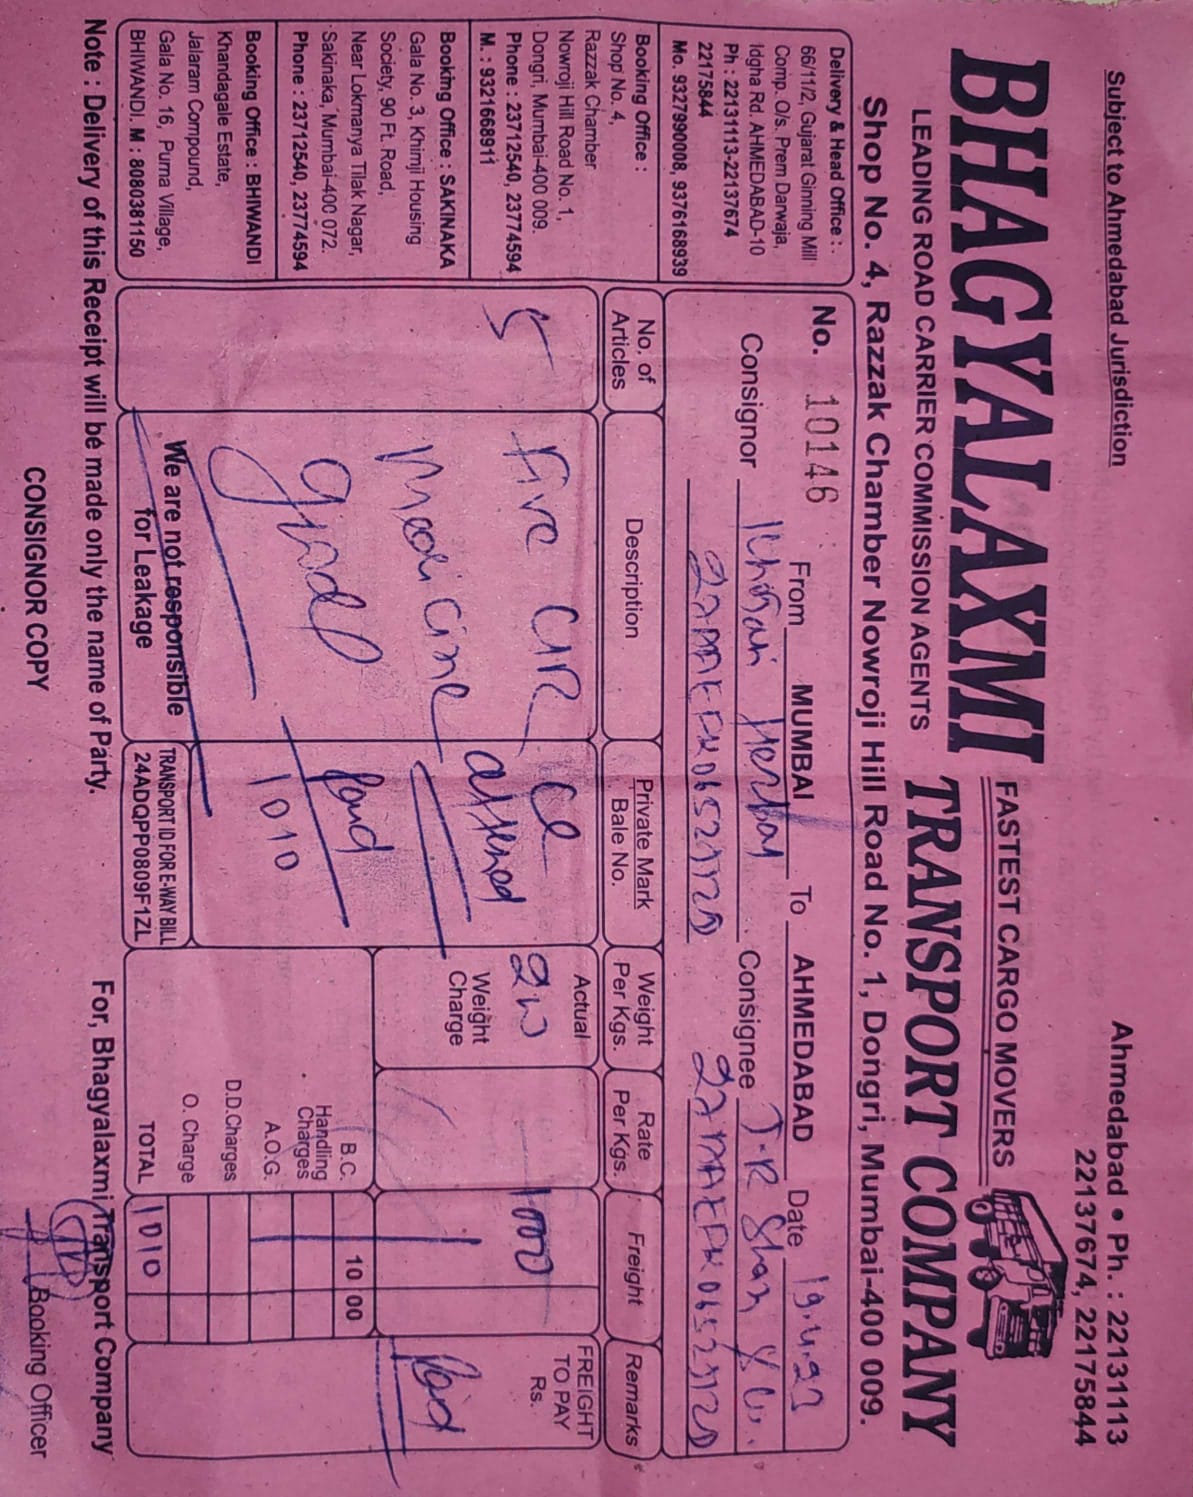 Subject to Ahmedabad Jurisdiction
Ahmedabad • Ph. : 22131113
22137674, 22175844
BHAGYALAXMI
FASTEST CARGO MOVERS
TRANSPORT COMPANY
LEADING ROAD CARRIER COMMISSION AGENTS
Shop No. 4, Razzak Chamber Nowroji Hill Road No. 1, Dongri, Mumbai-400 009.
Delivery & Head Office :
66/11/2, Gujarat Ginning Mill
Comp. O/s. Prem Darwaja,
Idgha Rd. AHMEDABAD-10
Ph : 22131113-22137674
22175844
Mo. 9327990008, 9376168939
Booking Office :
Shop No. 4,
Razzak Chamber
Nowroji Hill Road No. 1,
Dongri, Mumbai-400 009.
Phone : 23712540, 23774594
M. : 9321668911
Booking Office : SAKINAKA
Gala No. 3, Khimji Housing
Society, 90 Ft. Road,
Near Lokmanya Tilak Nagar,
Sakinaka, Mumbai-400 072.
Phone : 23712540, 23774594
Booking Office : BHIWANDI
Khandagale Estate,
Jalaram Compound,
Gala No. 16, Purna Village,
BHIWANDI. M : 8080381150
No. 10146 From MUMBAI To AHMEDABAD Date
Consignor Consignee J.R Shah
No. of Articles
Description
Private Mark Bale No.
Weight Per Kgs.
Rate Per Kgs.
Freight
Remarks
5
Five
Medicine
Paid
1010
Actual
Weight Charge
1000
FREIGHT TO PAY Rs.
Paid
B.C. 10 00
Handling Charges
A.O.G.
D.D.Charges
O. Charge
TOTAL 1010
We are not responsible
for Leakage
TRANSPORT ID FOR E-WAY BILL
24ADQPP0809F1ZL
Note : Delivery of this Receipt will be made only the name of Party.
For, Bhagyalaxmi Transport Company
CONSIGNOR COPY
Booking Officer